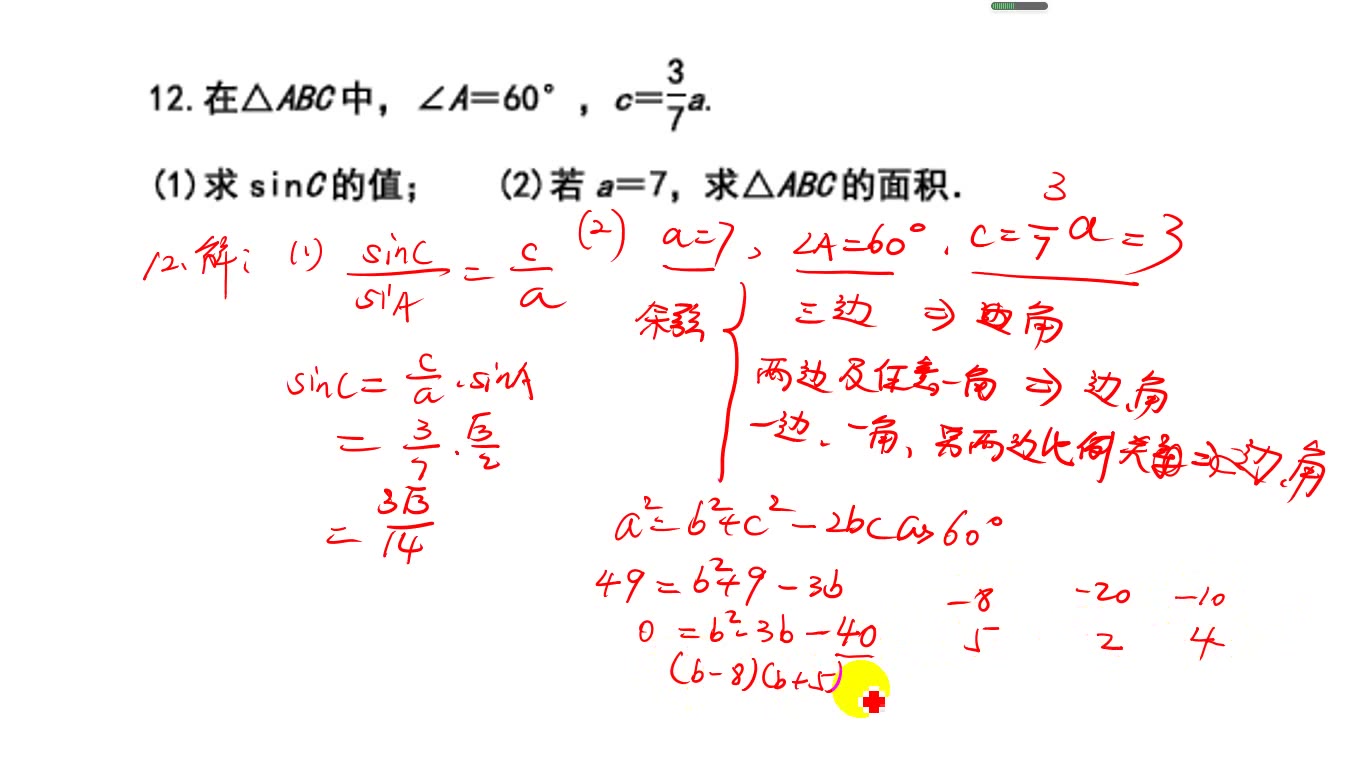 12.在△ABC中，∠A=60°，c=3/7a.
(1)求sinC的值； (2)若a=7，求△ABC的面积.
12.解: (1) sinC/sinA = c/a
sinC = c/a · sinA
= 3/7 · √3/2
= 3√3/14
(2) a=7, ∠A=60°. c=3/7a=3
余弦
三边 ⇒ 边角
两边及任意一角 ⇒ 边、角
一边、一角、另两边比例关系⇒边、角
a²=b²+c²-2bc cos60°
49=b²+9-3b
0=b²-3b-40
(b-8)(b+5)
-8 -20 -10
5 2 4